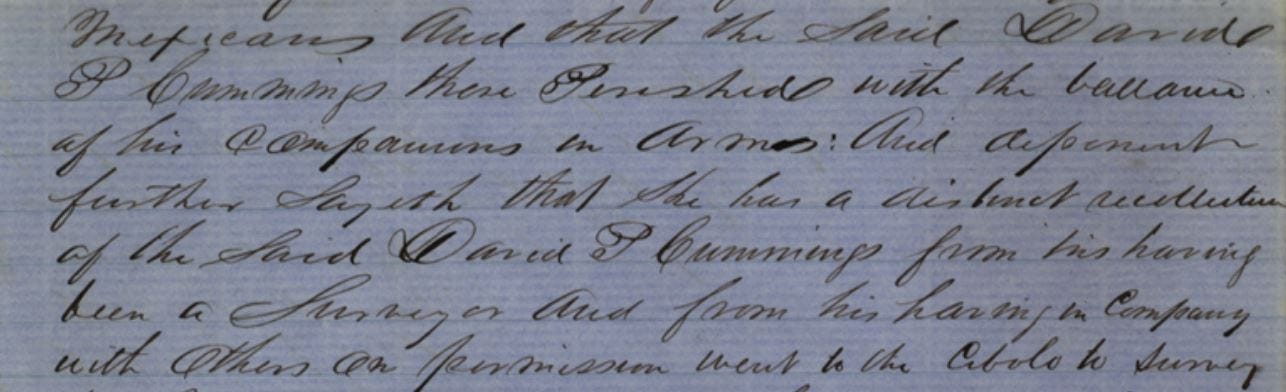 Mexicans And that the Said David
P Cummings there Perished with the ballance
of his Companions in Arms: And deponent
further Sayeth that She has a distinct recollection
of the Said David P Cummings from his having
been a Surveyor And from his having in Company
with Others on permission went to the Cibolo to Survey